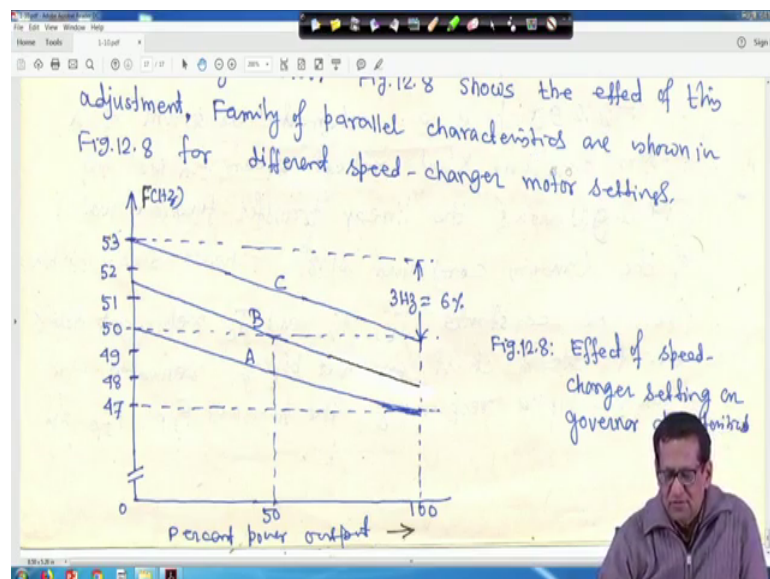 File Edit View Window Help
Home Tools 1-10.pdf × Sign
Fig.12.8 shows the effect of this
adjustment. Family of parallel characteristics are shown in
Fig.12.8 for different speed-changer motor settings.
F(Hz)
53
52
51
50
49
48
47
0
C
B
A
3Hz = 6%
50
100
Percent power output →
Fig.12.8: Effect of speed-
changer setting on
governor